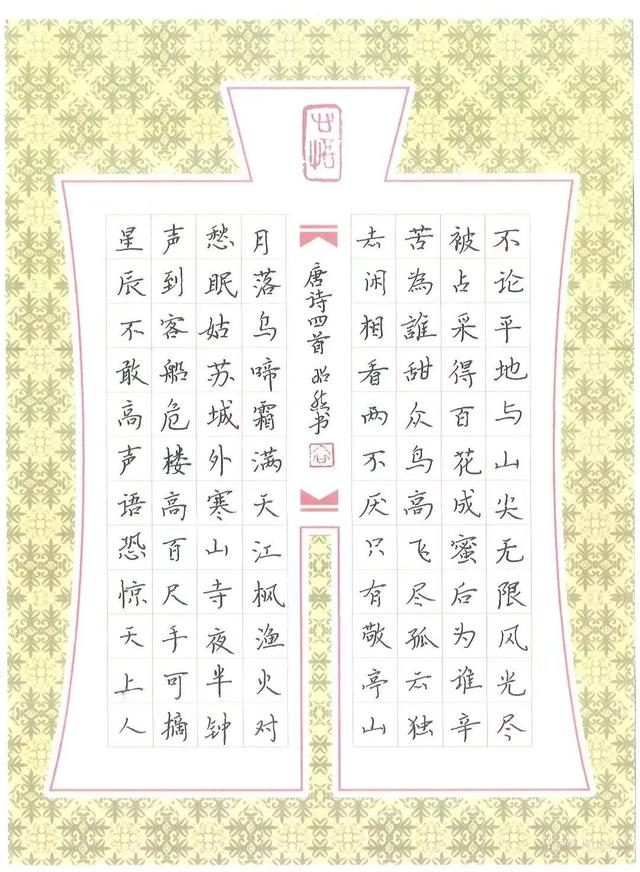 不论平地与山尖无限风光尽
被占采得百花成蜜后为谁辛
苦為誰甜众鸟高飞尽孤云独
去闲相看两不厌只有敬亭山
唐诗四首 书
月落乌啼霜满天江枫渔火对
愁眠姑苏城外寒山寺夜半钟
声到客船危楼高百尺手可摘
星辰不敢高声语恐惊天上人